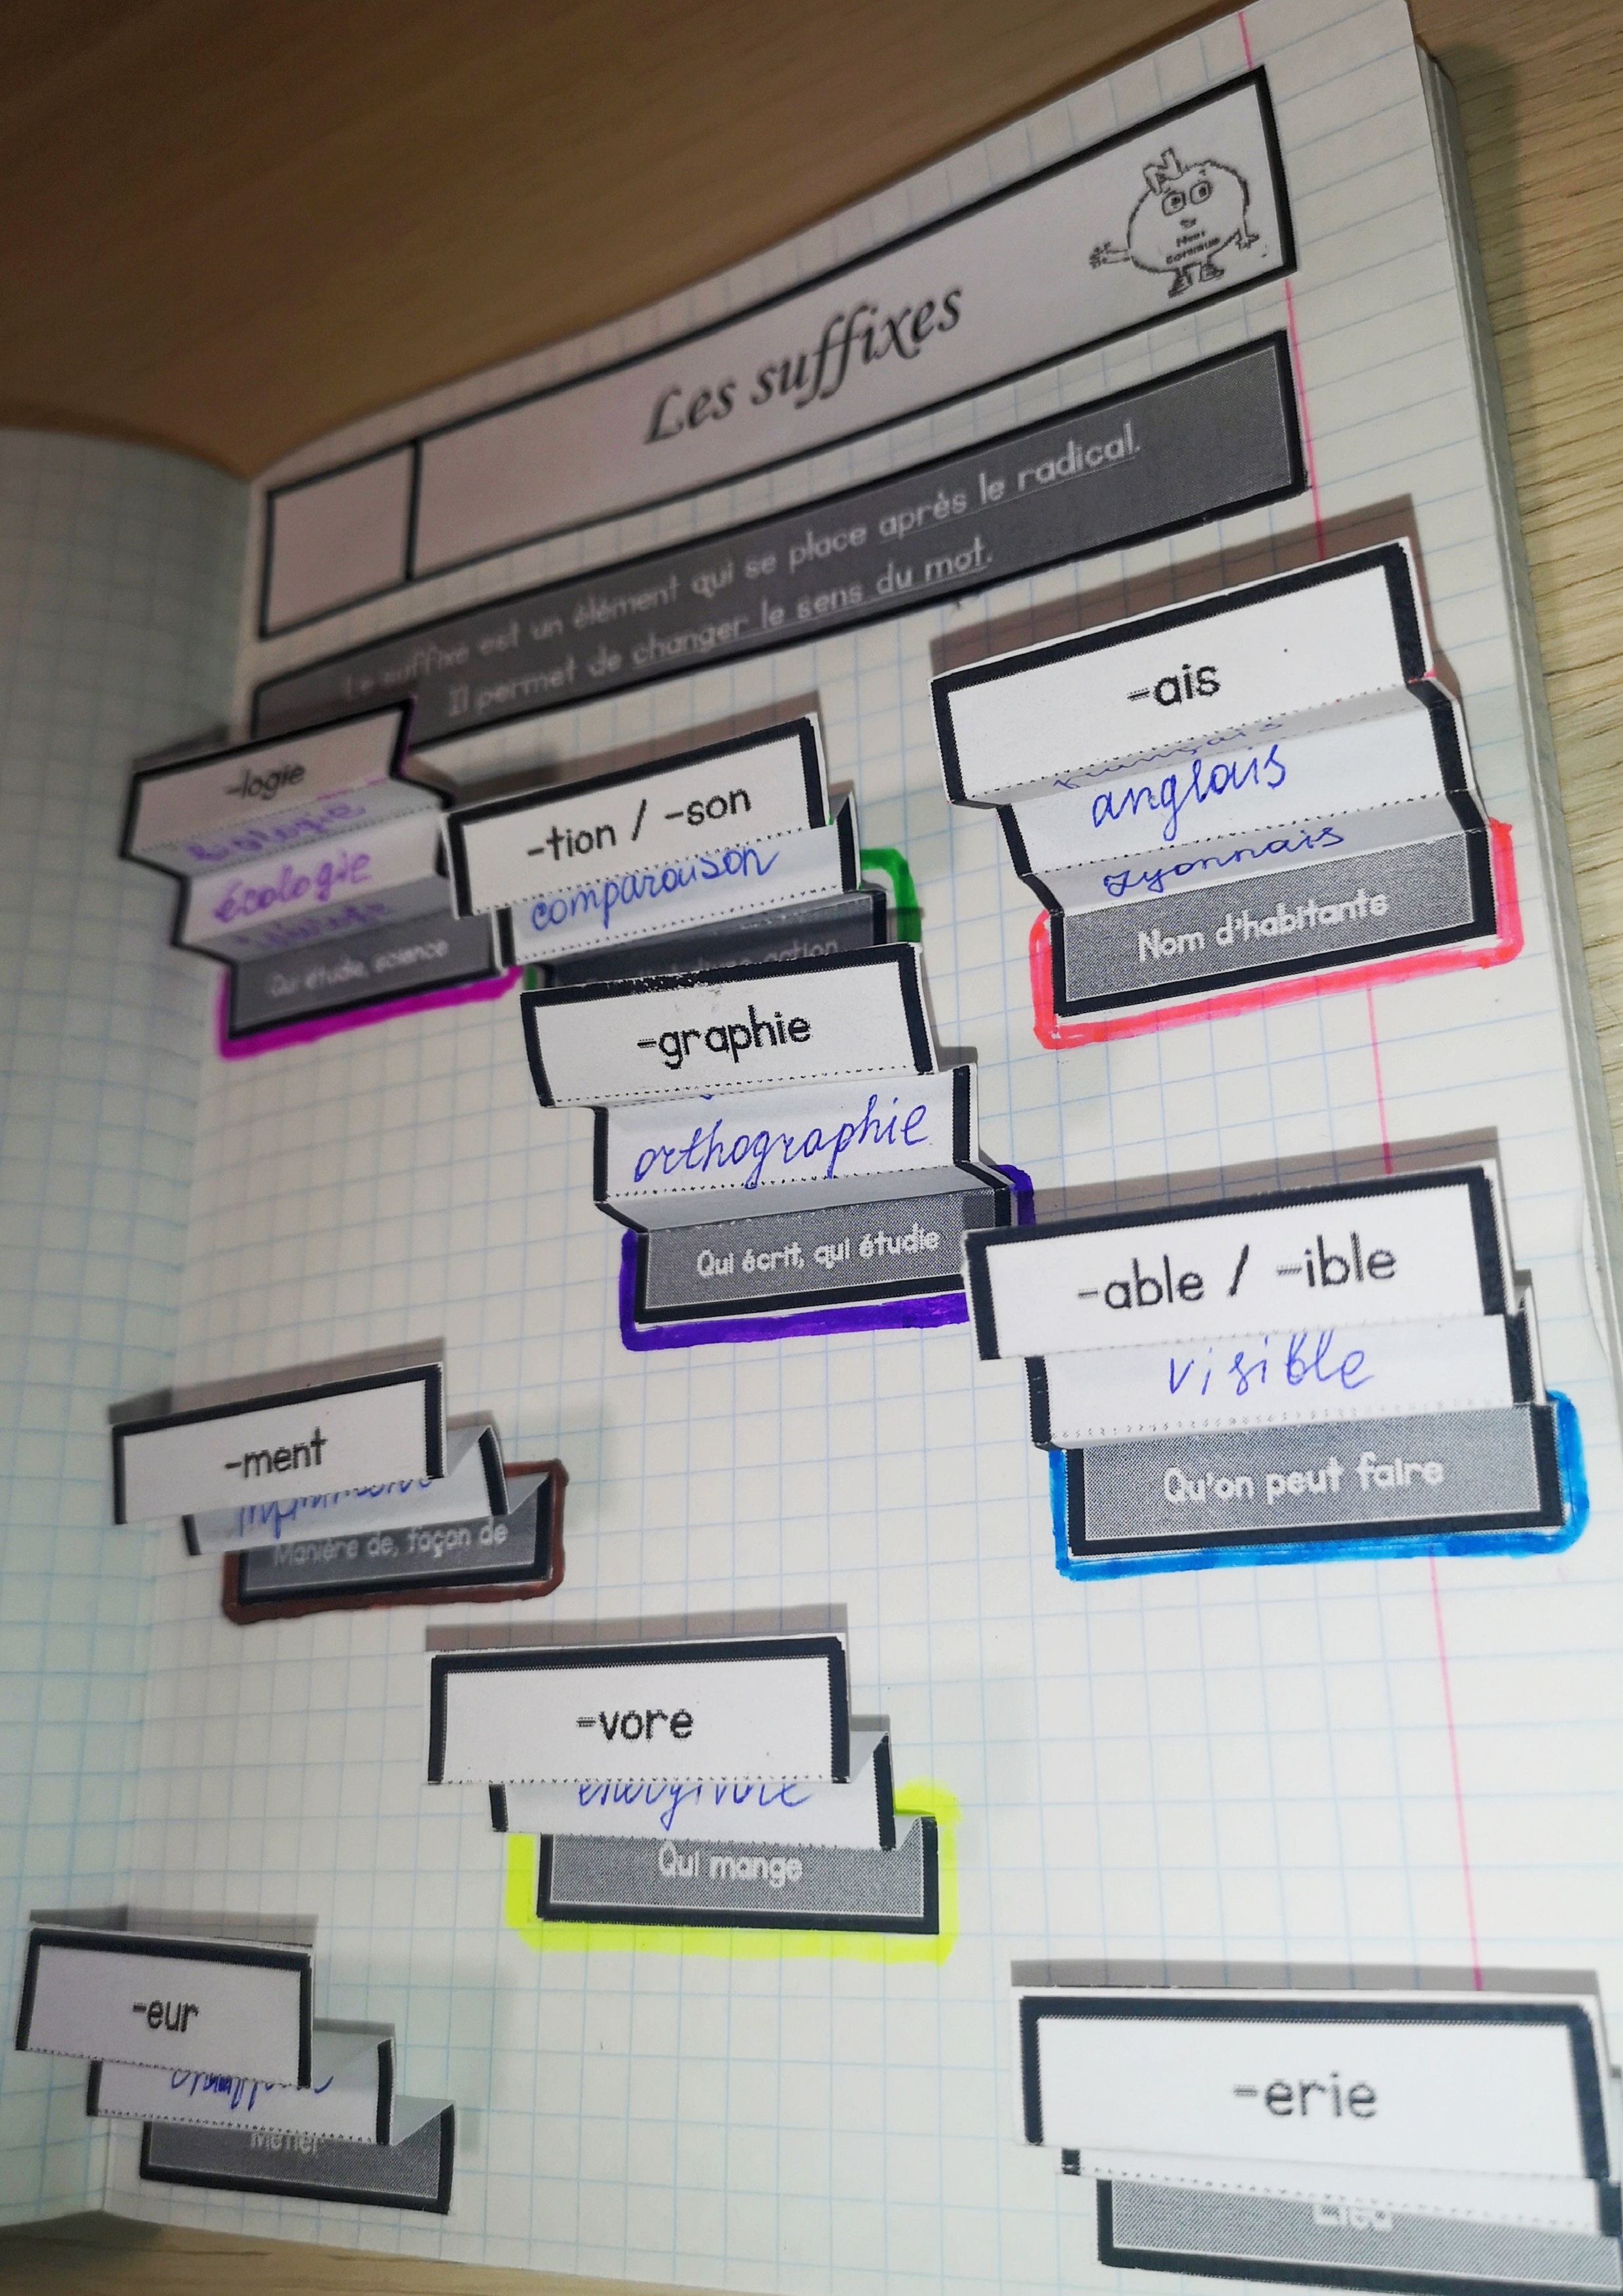 Les suffixes
Nom
commun
Le suffixe est un élément qui se place après le radical.
Il permet de changer le sens du mot.
-logie
biologie
écologie
Qui étudie, science
-tion / -son
comparaison
action
-ais
français
anglais
Lyonnais
Nom d'habitants
-graphie
orthographie
Qui écrit, qui étudie
-able / -ible
visible
Qu'on peut faire
-ment
Manière de, façon de
-vore
énergivore
Qui mange
-eur
Métier
-erie
Lieu